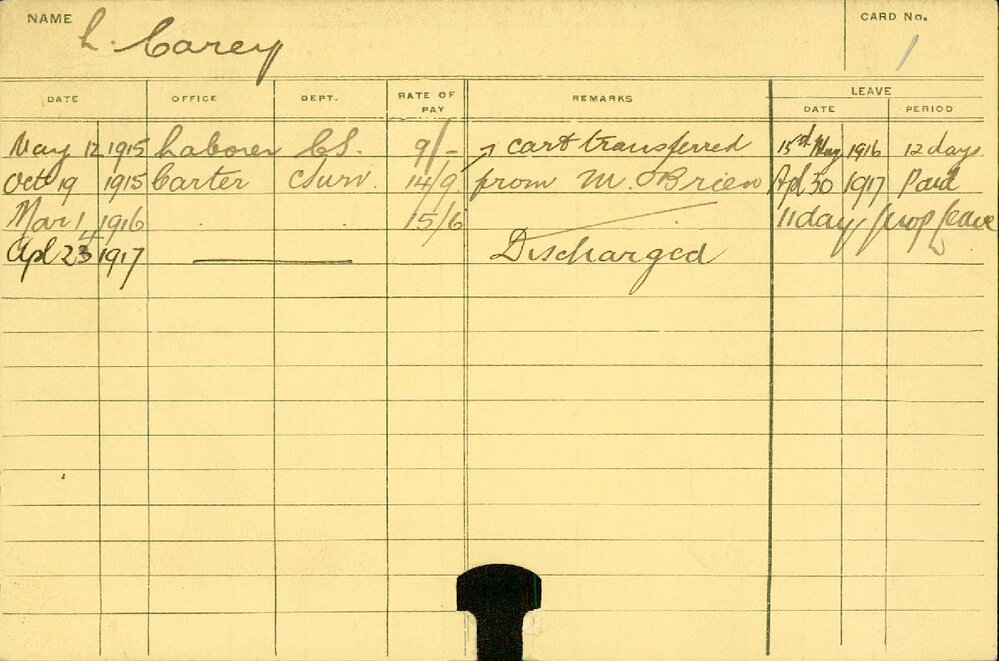 NAME L. Carey CARD No. 1
LEAVE
DATE OFFICE DEPT. RATE OF PAY REMARKS DATE PERIOD
May 12 1915 Laborer C.S. 9/- cart transferred 15th May 1916 12 days
Oct 19 1915 Carter C Surv. 14/9 from M. O'Brien Apl 30 1917 Paid
Mar 1 1916 . . 15/6 11 day prop leave
Apl 23 1917 Discharged